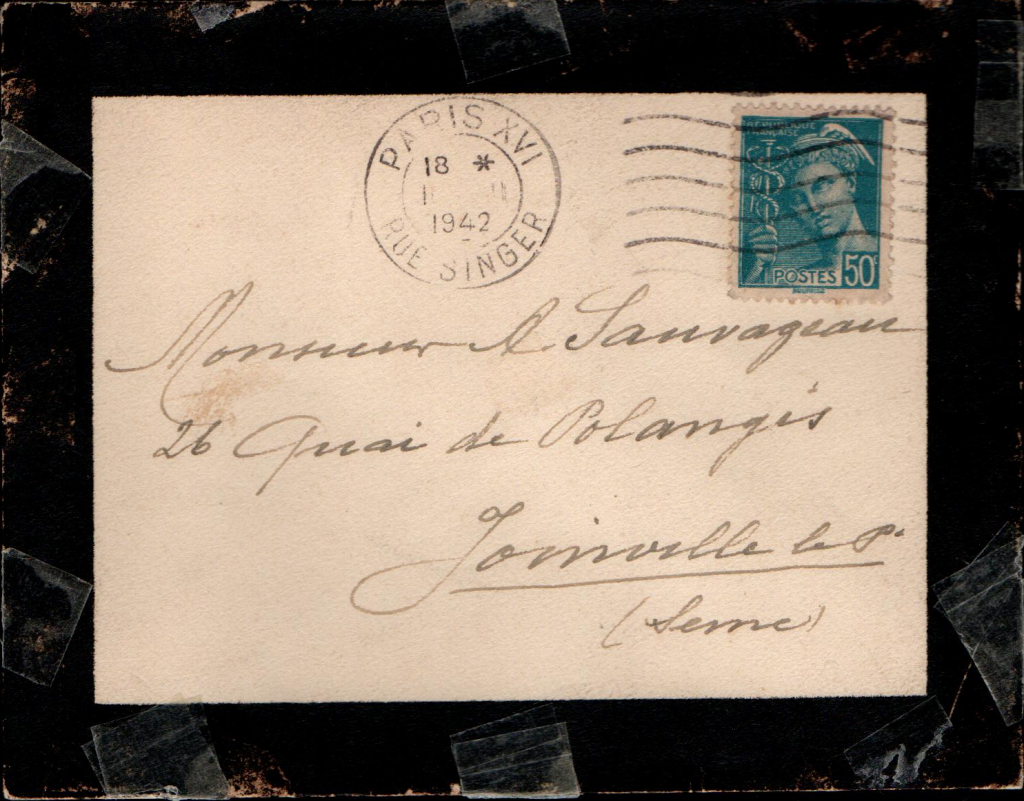 PARIS XVI
18 *
1942
RUE SINGER
REPUBLIQUE
FRANÇAISE
POSTES 50c
Monsieur A Sauvageau
26 Quai de Polangis
Joinville le P.
(Seine)